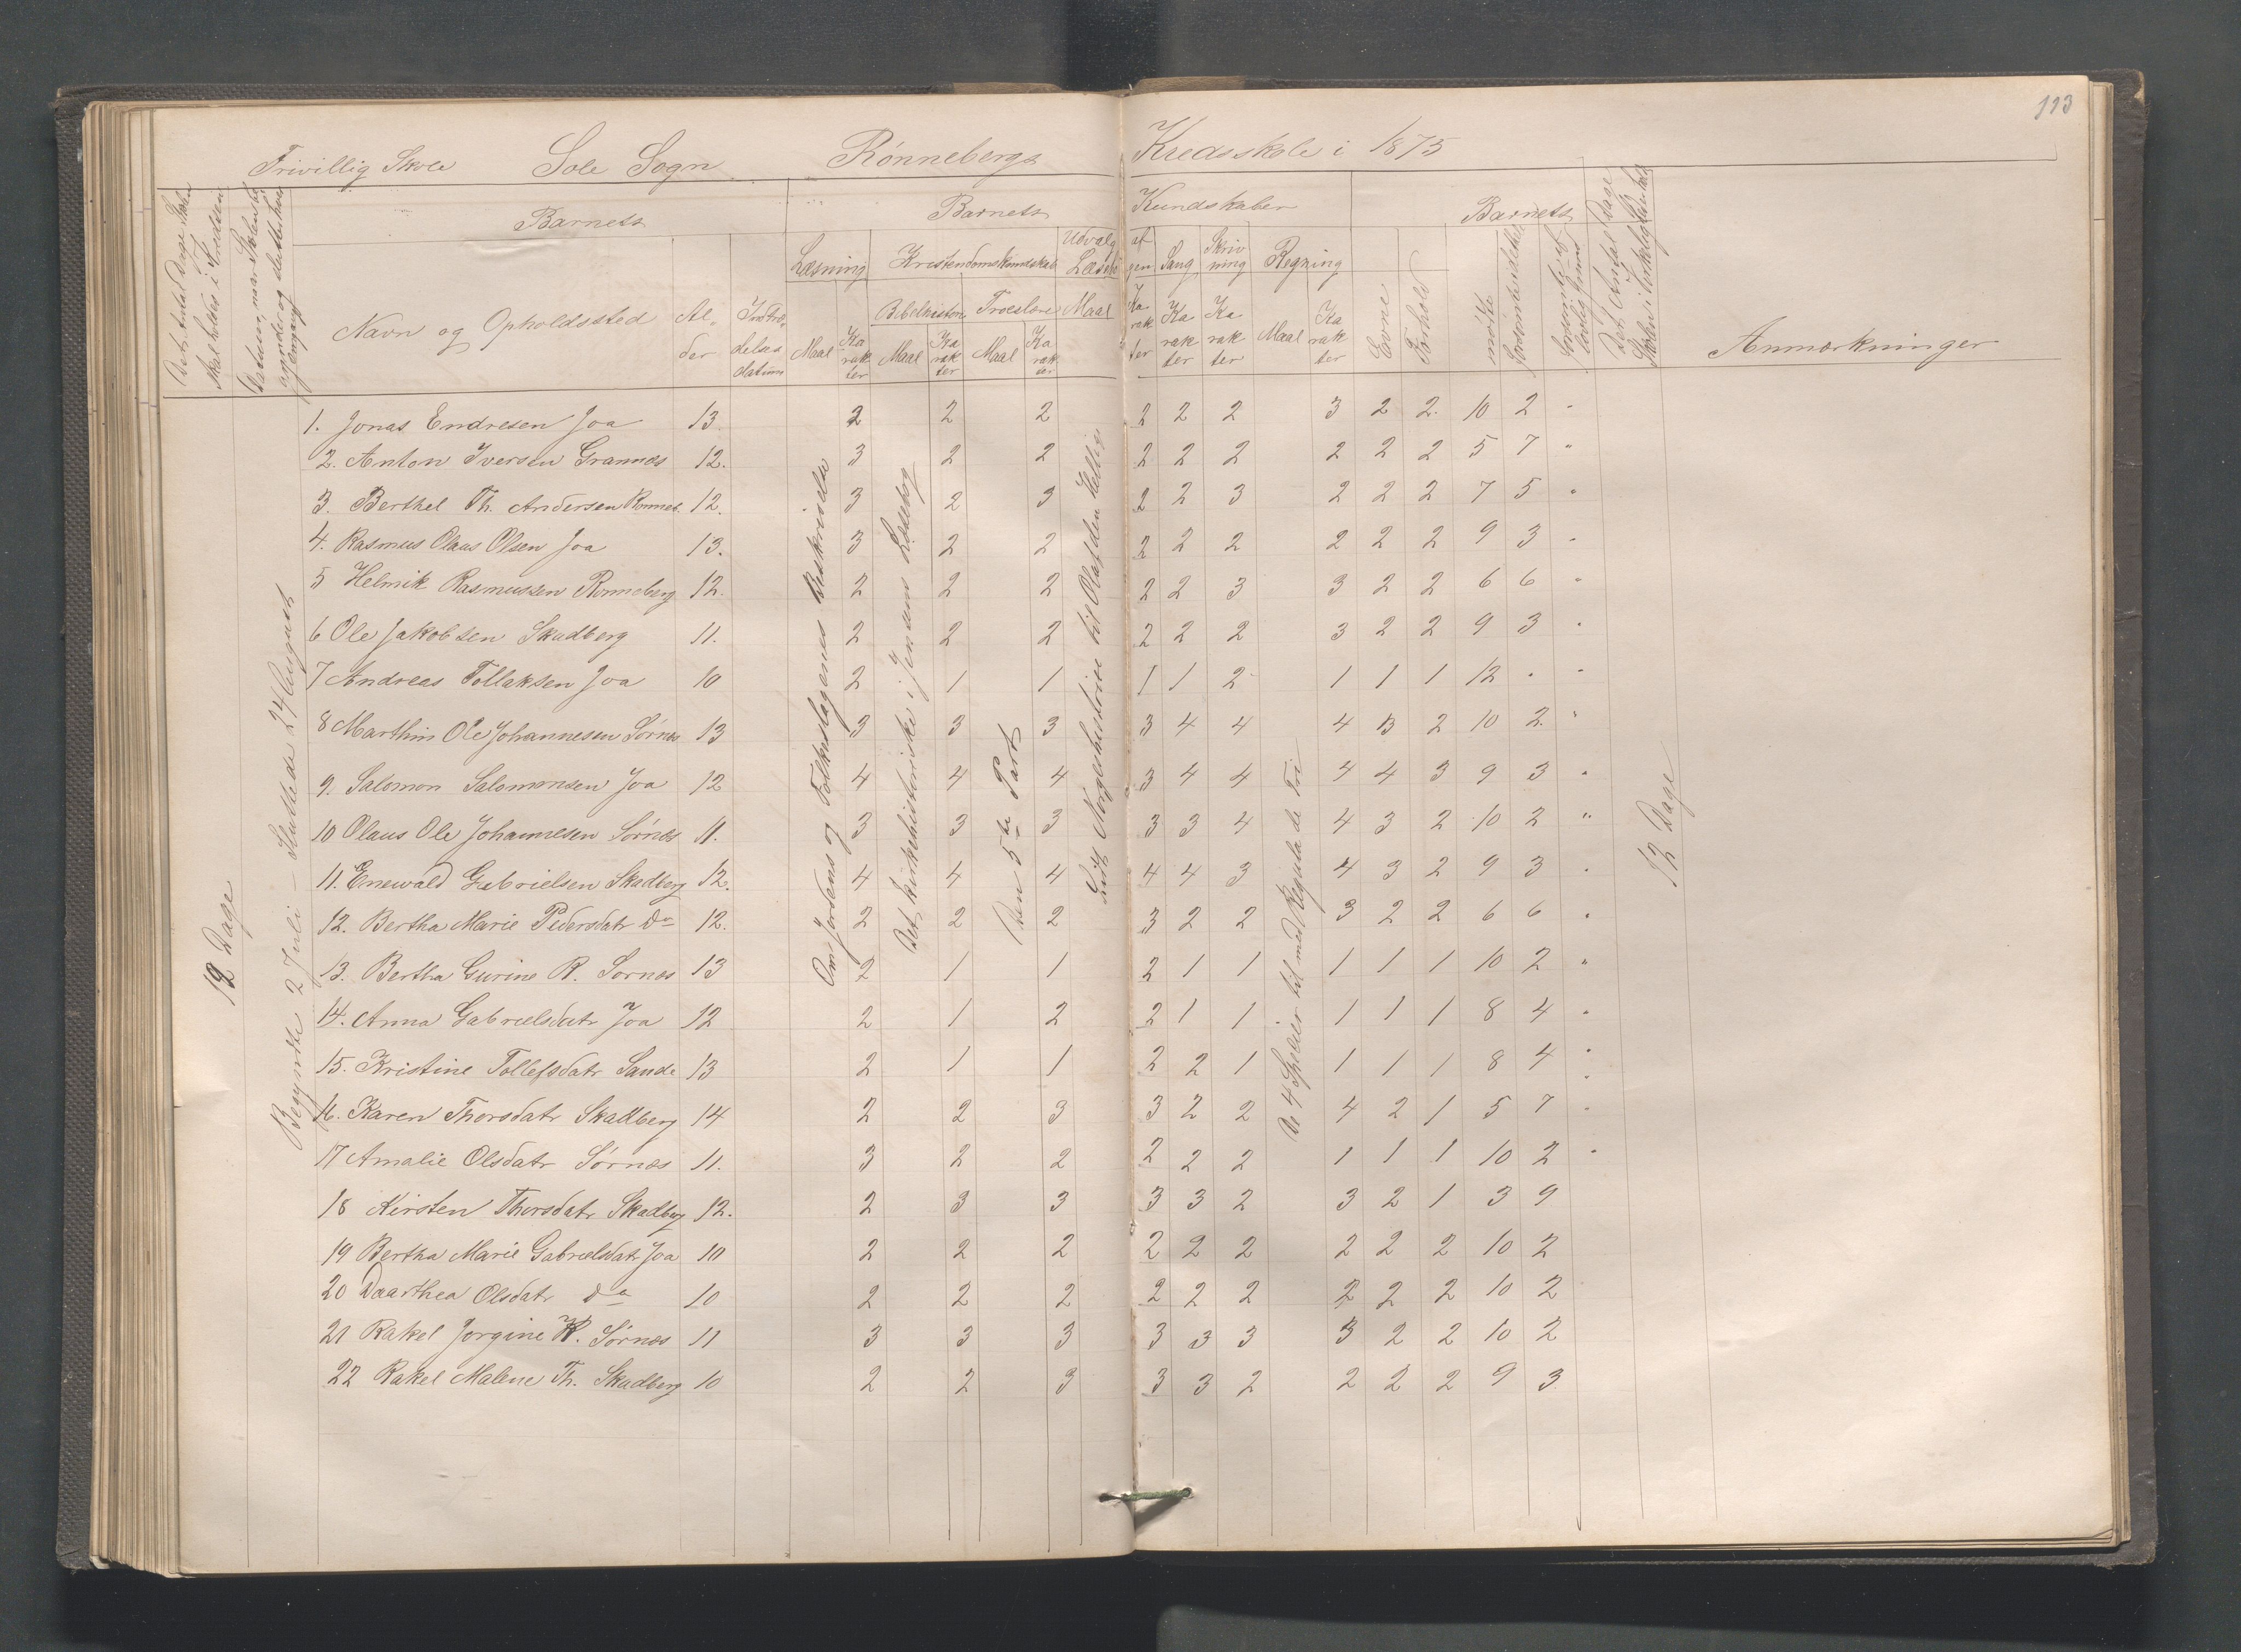 113
Frivillig Skole Sole Sogn Rønnebergs Kredsskole i 1875
Det Antal Dage Skolen skal holdes i Kredsen
Datum, naar Skolen begynder og slutter hver Omgang
Barnets
Barnets Kundskaber
Barnets
Det Antal Dage Skolen i Virkelighed er holdt
Læsning Kristendomskundskab Udvalg af Læsebogen Sang Skrivning Regning
Bibelhistorie Troeslære Maal
Navn og Opholdssted Alder Indtrædelsesdatum Maal Karakter Maal Karakter Maal Karakter Karakter Karakter Karakter Maal Karakter Evne Forhold mødte forsømte Anmærkninger
1. Jonas Endresen Joa 13. 2 2 2 2 2 2 3 2 2. 10 2 "
2. Anton Iversen Grannes 12. 3 2 2 2 2 2 2 2 2 5 7 "
3. Berthel Th. Andersen Ronneb. 12. 3 2 3 2 2 3 2 2 2 7 5 "
4. Rasmus Olaus Olsen Joa 13. 3 2 2 2 2 2 2 2 2 9 3 "
5 Helmik Rasmussen Ronneberg 12. 2 2 2 2 2 3 3 2 2 6 6 "
6 Ole Jakobsen Skadberg 11. 2 2 2 2 2 2 3 2 2 9 3 "
7 Andreas Tollaksen Joa 10 2 1 1 1 1 2 1 1 1 12 " "
8 Marthin Ole Johannesen Sørnes 13 3 3 3 3 4 4 4 3 2 10 2 "
9. Salomon Salomonsen Joa 12 4 4 4 3 4 4 4 4 3 9 3 "
10 Olaus Ole Johannesen Sørnes 11. 3 3 3 3 3 4 4 3 2 10 2 "
11. Enewald Gabrielsen Skadberg 12. 4 4 4 4 4 3 4 3 2 9 3 "
12. Bertha Marie Pedersdatr Do 12. 2 2 2 3 2 2 3 2 2 6 6 "
13. Bertha Gurine R. Sornes 13 2 1 1 2 1 1 1 1 1 10 2 "
14. Anna Gabrielsdatr Joa 12 2 1 2 2 1 1 1 1 1 8 4 "
15. Kristine Tollefsdatr Sande 13 2 1 1 2 2 1 1 1 1 8 4 "
16. Karen Thorsdatr Skadberg 14 2 2 3 3 2 2 4 2 1 5 7 "
17 Amalie Olsdatr Sørnes 11. 3 2 2 2 2 2 1 1 1 10 2 "
18 Kirsten Thorsdatr Skadberg 12. 2 3 3 3 3 2 3 2 1 3 9
19 Bertha Marie Gabrielsdatr Joa 10 2 2 2 2 2 2 2 2 2 10 2
20 Daarthea Olsdatr do 10 2 2 2 2 2 2 2 2 2 10 2
21 Rakel Jorgine K. Sørnes 11 3 3 3 3 3 3 3 2 2 10 2
22 Rakel Malene Th. Skadberg 10 2 2 3 3 3 2 2 2 2 9 3
12 Dage
Begyndte 2 Juli – Sluttede 24 August
Om Jordens og Folkeslagenes Beskrivelse
Det kirkehistoriske i Jensens Læsebog
Den 5te Part
Lidt Norgeshistorie til Olaf den Hellige
De 4 Spesier til med Regula de Tri
12 Dage